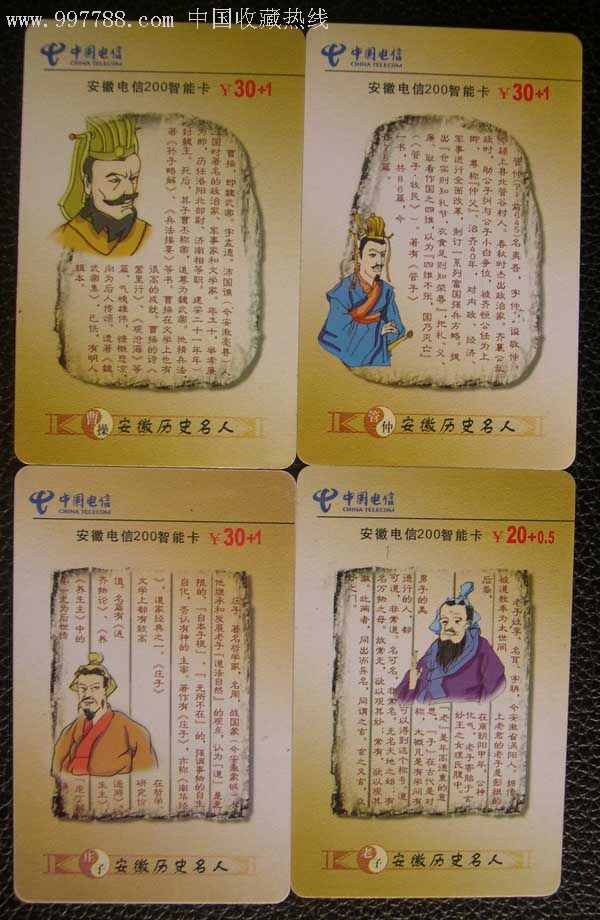 www.997788.com 中国收藏热线
中国电信
CHINA TELECOM
安徽电信200智能卡 ¥30+1
曹操，即魏武帝。字孟德。沛国谯（今安徽亳县）人，
三国时著名的政治家、军事家和文学家。年二十，举孝廉
为郎，历任洛阳北部尉、济南相等职。建安二十一年
封魏王。死后，其子曹丕称帝，追尊为魏武帝。他精兵法，
著《孙子略解》、《兵法接要》等书。曹操在文学上也有
很高的成就。曹操的诗《
蒿里行》、《观沧海》等
篇，气魄雄伟，慷慨悲凉，
向为后人传颂，遗著《魏
武帝集》，已佚，有明人
辑本。
曹操 安徽历史名人
中国电信
CHINA TELECOM
安徽电信200智能卡 ¥30+1
管仲
颍上县北管谷村人。春秋时杰出政治家。齐襄公乱
政时，助公子纠与公子小白争位，被齐桓公任为上
卿，尊称“仲父”，治齐40年，对内政、经济、
军事进行全面改革，制订一系列富国强兵方略，提
出“仓实则知礼节，衣食足则知荣辱”，把礼、义、
廉、耻看作国之四维，以为“四维不张，国乃灭亡”
（《管子·牧民》）。著有《管子》
一书，共86篇，今
存76篇。
管仲 安徽历史名人
中国电信
CHINA TELECOM
安徽电信200智能卡 ¥30+1
庄子，著名哲学家，名周，战国蒙（今安徽蒙城）人
他继承和发展老子“道法自然”的观点，认为“道”是无
限的、“自本子根”、“无所不在”的，强调事物的自生
自化，否认有神的主宰。著作有《庄子》，亦称《南华经
》，道家经典之一。《庄子》 在哲学、
文学上都有较高 研究价
值，名篇有《逍 遥游》、
《齐物论》、《养 生主》，
《养生主》中的
庄子 安徽历史名人
中国电信
CHINA TELECOM
安徽电信200智能卡 ¥20+0.5
老子姓李，名耳，字聃，今安徽省涡阳人。
被道教奉为太世间
上老君的老子是彭祖的
后裔，
在商朝阳甲年，公神
化气，老子寄胎于玄
妙王之女理氏腹中。
“老”是年高德重的意
思，“子”在古代是对
男子的美 称，大概凡是有学问有
道行的人，都 可以得到这个称号。道
可道，非常道。名可名，非常名。无名天地之始；有
名万物之母。故常无，欲以观其妙；常有，欲以观其
徼。此两者，同出而异名，同谓之玄。玄之又玄，众
妙之门。
老子 安徽历史名人